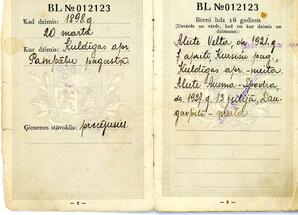 BL № 012123
Kad dzimis: 1898 g.
20 martā
Kur dzimis: Kuldīgas apr.
pagastā
Ģimenes stāvoklis: precējusies.
— 2 —
BL № 012123
Bērni līdz 16 gadiem
(Uzvārds un vārds, kad un kur dzimis un
dzimums)
Alute Velta, dz. 1921. g.
7 aprīlī, pag.,
Kuldīgas apr. - meita
Alute - Spodra,
dz. 1927. g. 13 jūlijā, Dau-
gavpilī - meita
— 3 —